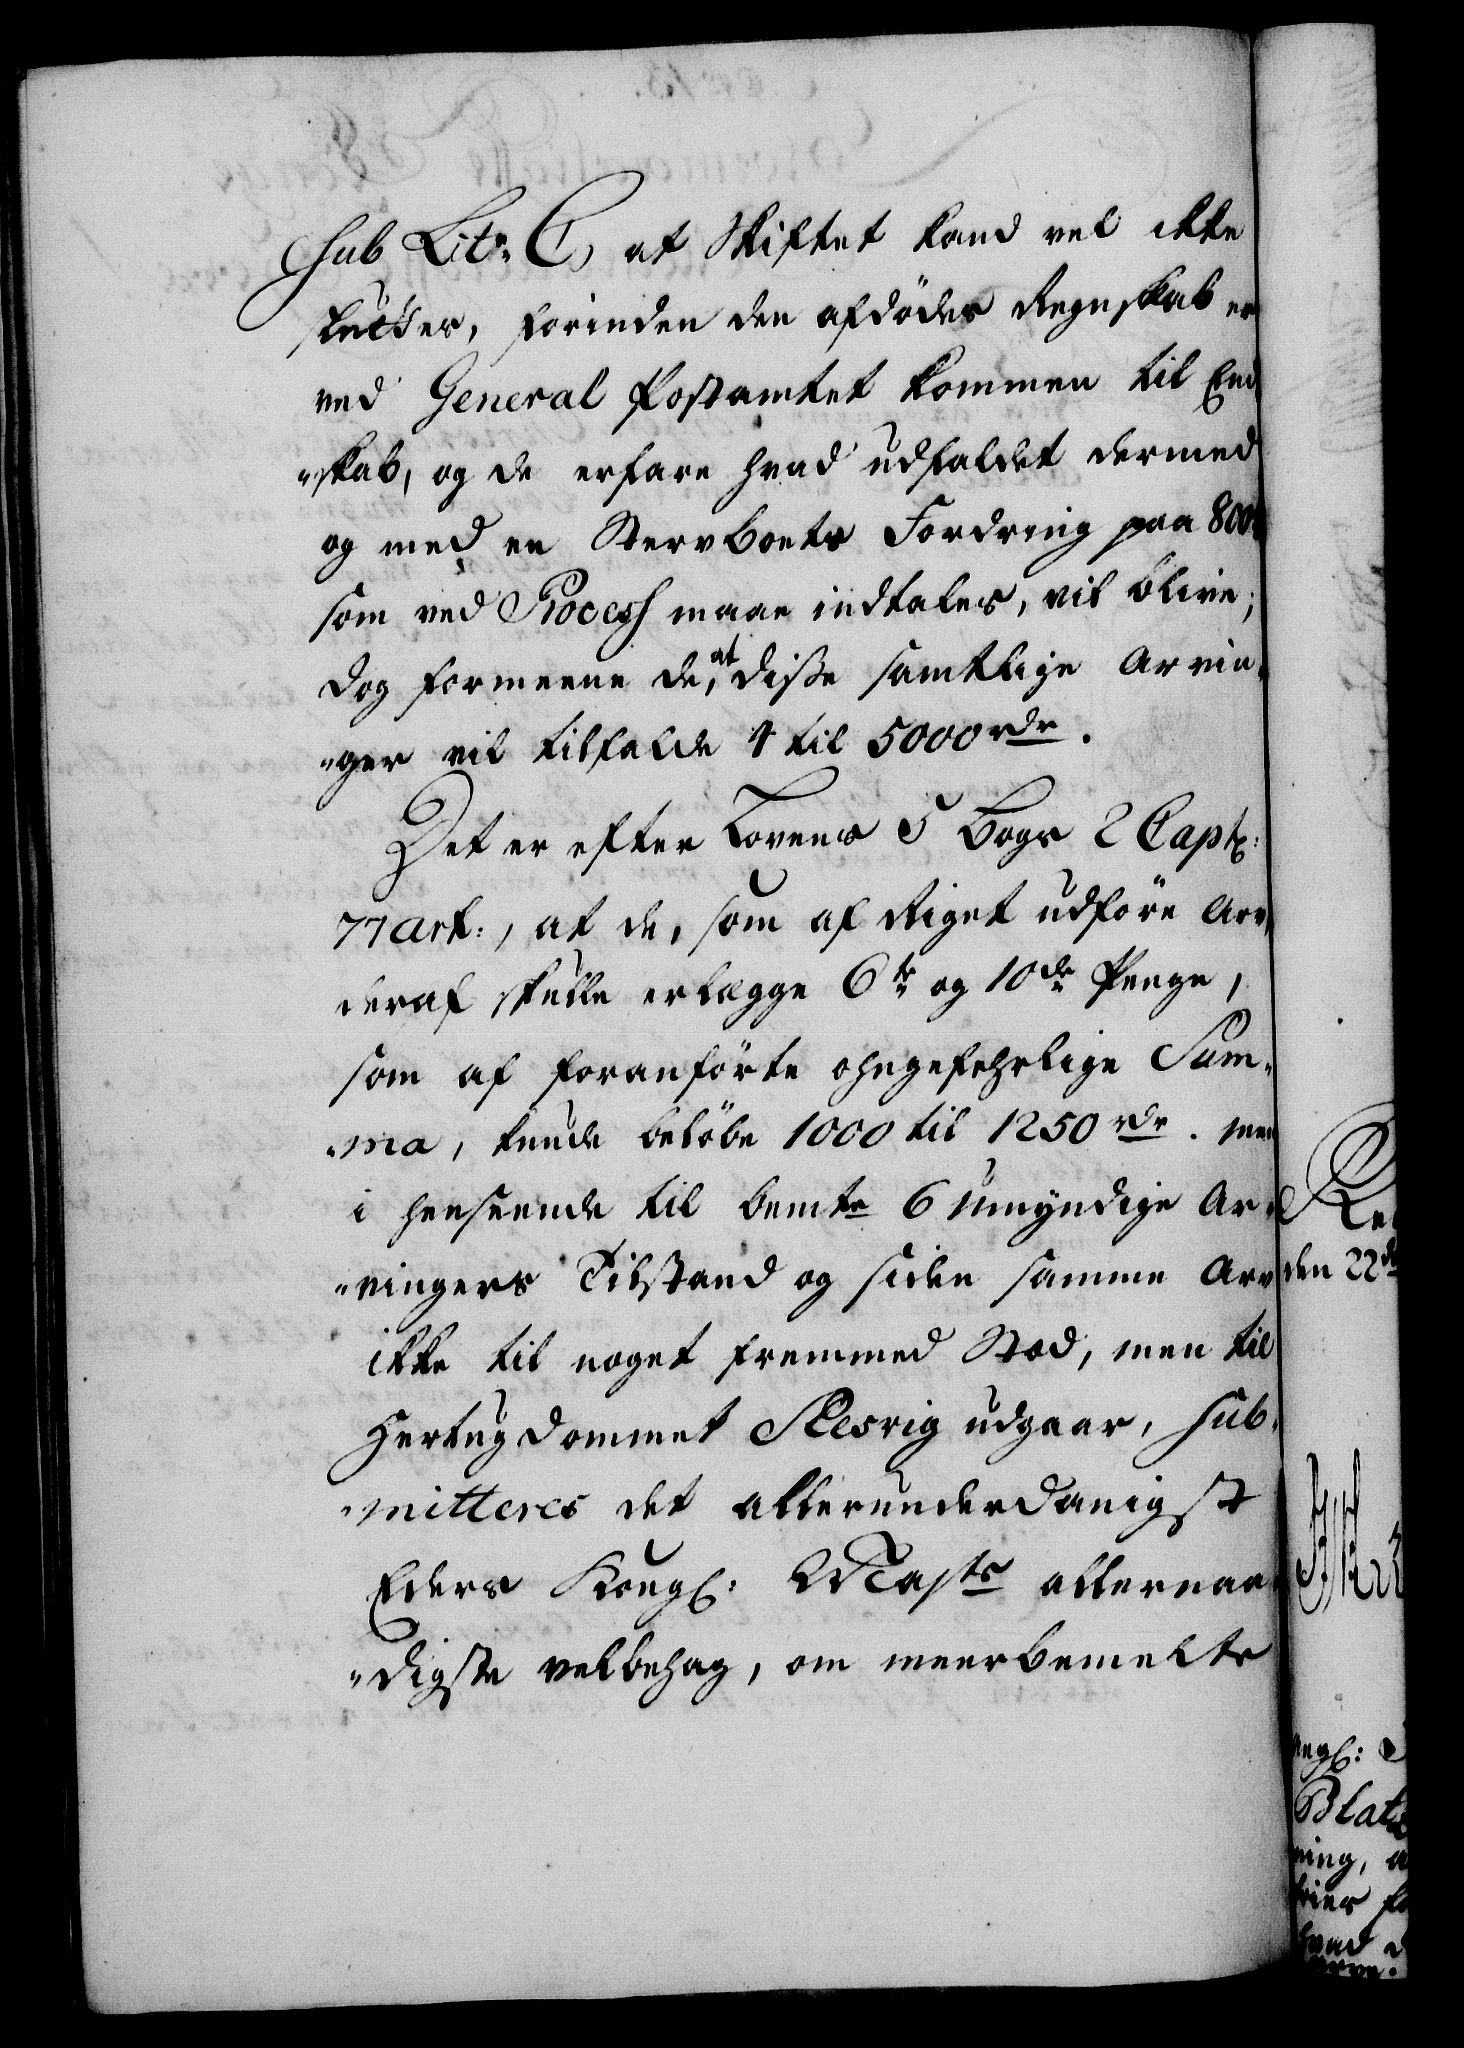 sub Litr: C, at Skiftet kand vel ikke
sluttes, forinden den afdødes Regnskab er
ved General Postamtet kommen til End
"skab, og de erfare hvad udfaldet dermed
og med en Stervboets Fordring paa 800
som ved Process maae indtales, vil blive;
dog formeene de, at disse samtlige Arvin-
"ger vil tilfalde 4 til 5000 rdr.
Det er efter Lovens 5 Bogs 2 Capt:
77 Art:, at de, som af Riget udføre Arv,
deraf skulle erlægge 6te og 10de Penge,
som af foranførte ohngefehrlige Sum-
"ma, kunde beløbe 1000 til 1250 rdr. men
i henseende til bemte 6 umyndige Ar-
"vingers Tilstand og siden samme Arv
ikke til noget fremmed Stod, men til
Hertugdommet Slesvig udgaar, sub-
"mitteres det allerunderdanigst
Eders Kongl: Mayts allernaa-
"digste velbehag, om meerbemelte
den 22de